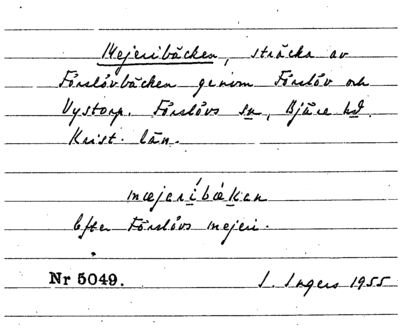 Mejeribäcken, sträcka av
Förslövbäcken genom Förslöv och
Vystorp. Förslövs sn, Bjäre hd.
Krist. län.
mæjeríbǽkan
Efter Förslövs mejeri.
Nr 5049.
I. Ingers 1955